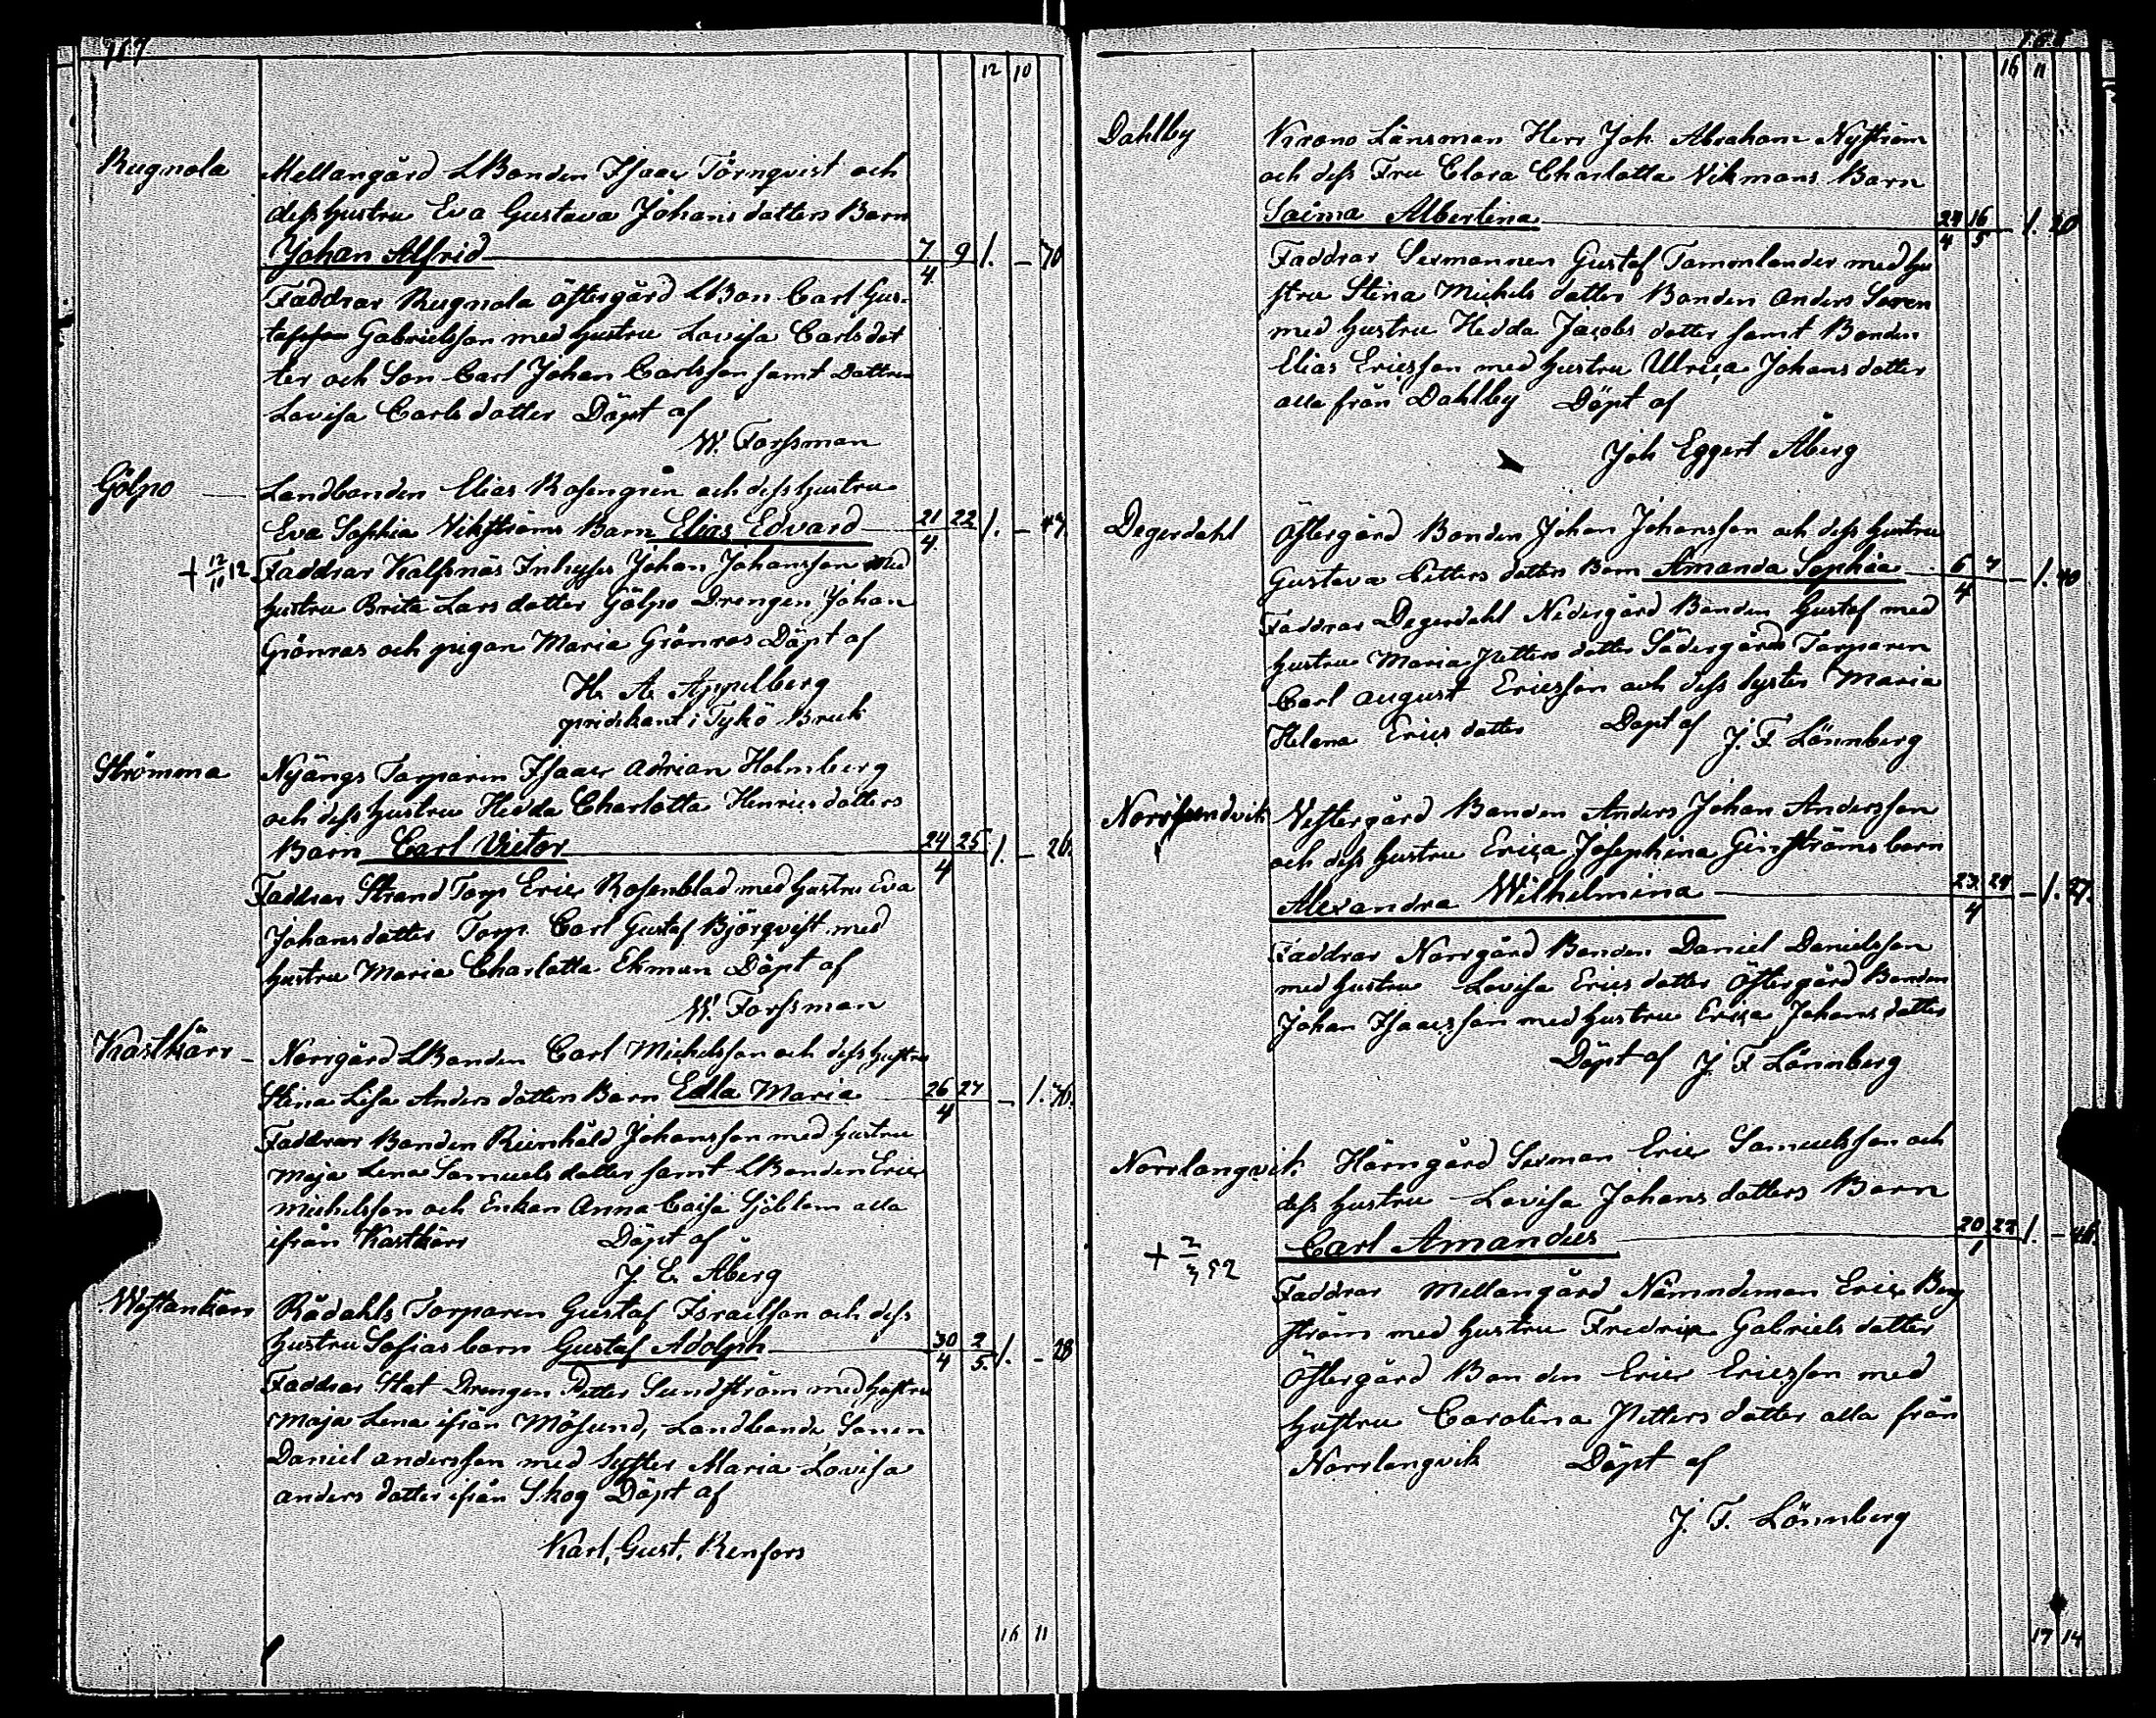 12 10
Rugnola Mellangård LBonden Isaac Törnqvist och
dess hustru Eva Gustava Johansdotters Barn
Johan Alfrid 7/4 9 1. – 70
Faddrar Rugnola Östergård LBon Carl Gus-
Gabrielsson med hustru Lovisa Carlsdot
ter och Son Carl Johan Carlsson samt Dottren
Lovisa Carlsdotter Döpt af
W. Forssman
Gölpo Landbonden Elias Rosengrén och dess hustru
Eva Sophia Vikströms Barn Elias Edvard 21/4 22 1. – 47.
+ 12/10 12 Faddrar Kalfsnäs Inhyses Johan Johansson med
hustru Brita Lars dotter Gölpo Drengen Johan
Grönros och pigan Maria Grönros Döpt af
H. A. Appelberg
predikant i Tykö Bruk
Strömma Nyängs Torparen Isaac Adrian Holmberg
och dess hustru Hedda Charlotta Henricsdotters
Barn Carl Victor 24/4 25 1. – 26.
Faddrar Strand Torp Eric Rosenblad med hustru Eva
Johansdotter Torp. Carl Gustaf Björqvist med
hustru Maria Charlotta Ekman Döpt af
W. Forssman
Kastkärr – Norrgård LBonden Carl Michelsson och dess hustru
Stina Lisa Anders dotters Barn Edla Maria 26/4 27 – 1. 76.
Faddrar Bonden Reinhåld Johansson med hustru
Maja Lena Samuels dotter samt LBonden Eric
Michelsson och Enkan Anna Caisa Sjöblom alla
ifrån Kastkärr Döpt af
J. E. Åberg
Westankärr Rådahls Torparen Gustaf Israelsson och dess
hustru Sofias barn Gustaf Adolph 30/4 2/5. 1. – 28
Faddrar Stat Drengen Petter Sundström med hustru
Maja Lena ifrån Mösund, Landbonde Sonen
Daniel andersson med Syster Maria Lovisa
anders dotter ifrån Skog Döpt af
Karl. Gust. Renfors
16 11
16 11
Dahlby Krono Länsman Herr Joh. Abraham Nyström
och dess Fru Clara Charlotta Vikmans Barn
Saima Albertina 24/4 16/5 – 1. 20
Faddrar Sexmannen Gustaf Tammlander med hu
stru Stina Michels dotter Bonden Anders Soren
med hustru Hedda Jacobs dotter samt Bonden
Elias Ericsson med hustru Ulrica Johans dotter
alla från Dahlby Döpt af
Joh Eggert Åberg
Degerdahl Östergård Bonden Johan Johansson och dess hustru
Gustava Petters dotters Barn Amanda Sophia 6/4 7 – 1. 40
Faddrar Degerdahl Nedergård Bonden Gustaf med
hustru Maria Petters dotter Södergårds Torparen
Carl august Ericsson och dess syster Maria
Helena Erics dotter Döpt af J. F. Lönnberg
Norrsundvik Vestergård Bonden Anders Johan Andersson
och dess hustru Erica Josephina Ginströms barn
Alexandra Wilhelmina 23/4 24 – 1. 27.
Faddrar Norrgård Bonden Daniel Danielsson
med hustru Lovisa Erics dotter Östergård Bonden
Johan Isaacsson med hustru Erica Johans dotter
Döpt af J. F. Lönnberg
Norrlangvik Hörngård Sexman Eric Samuelsson och
dess hustru Lovisa Johans dotters Barn
+ 2/3 52 Carl Amandus 20/1 22 1. – 46.
Faddrar Mellangård Nämndeman Eric Berg
ström med hustru Fredrica Gabriels dotter
Östergård Bonden Eric Ericsson med
hustru Carolina Petters dotter alla från
Norrlangvik Döpt af
J. F. Lönnberg
17 14